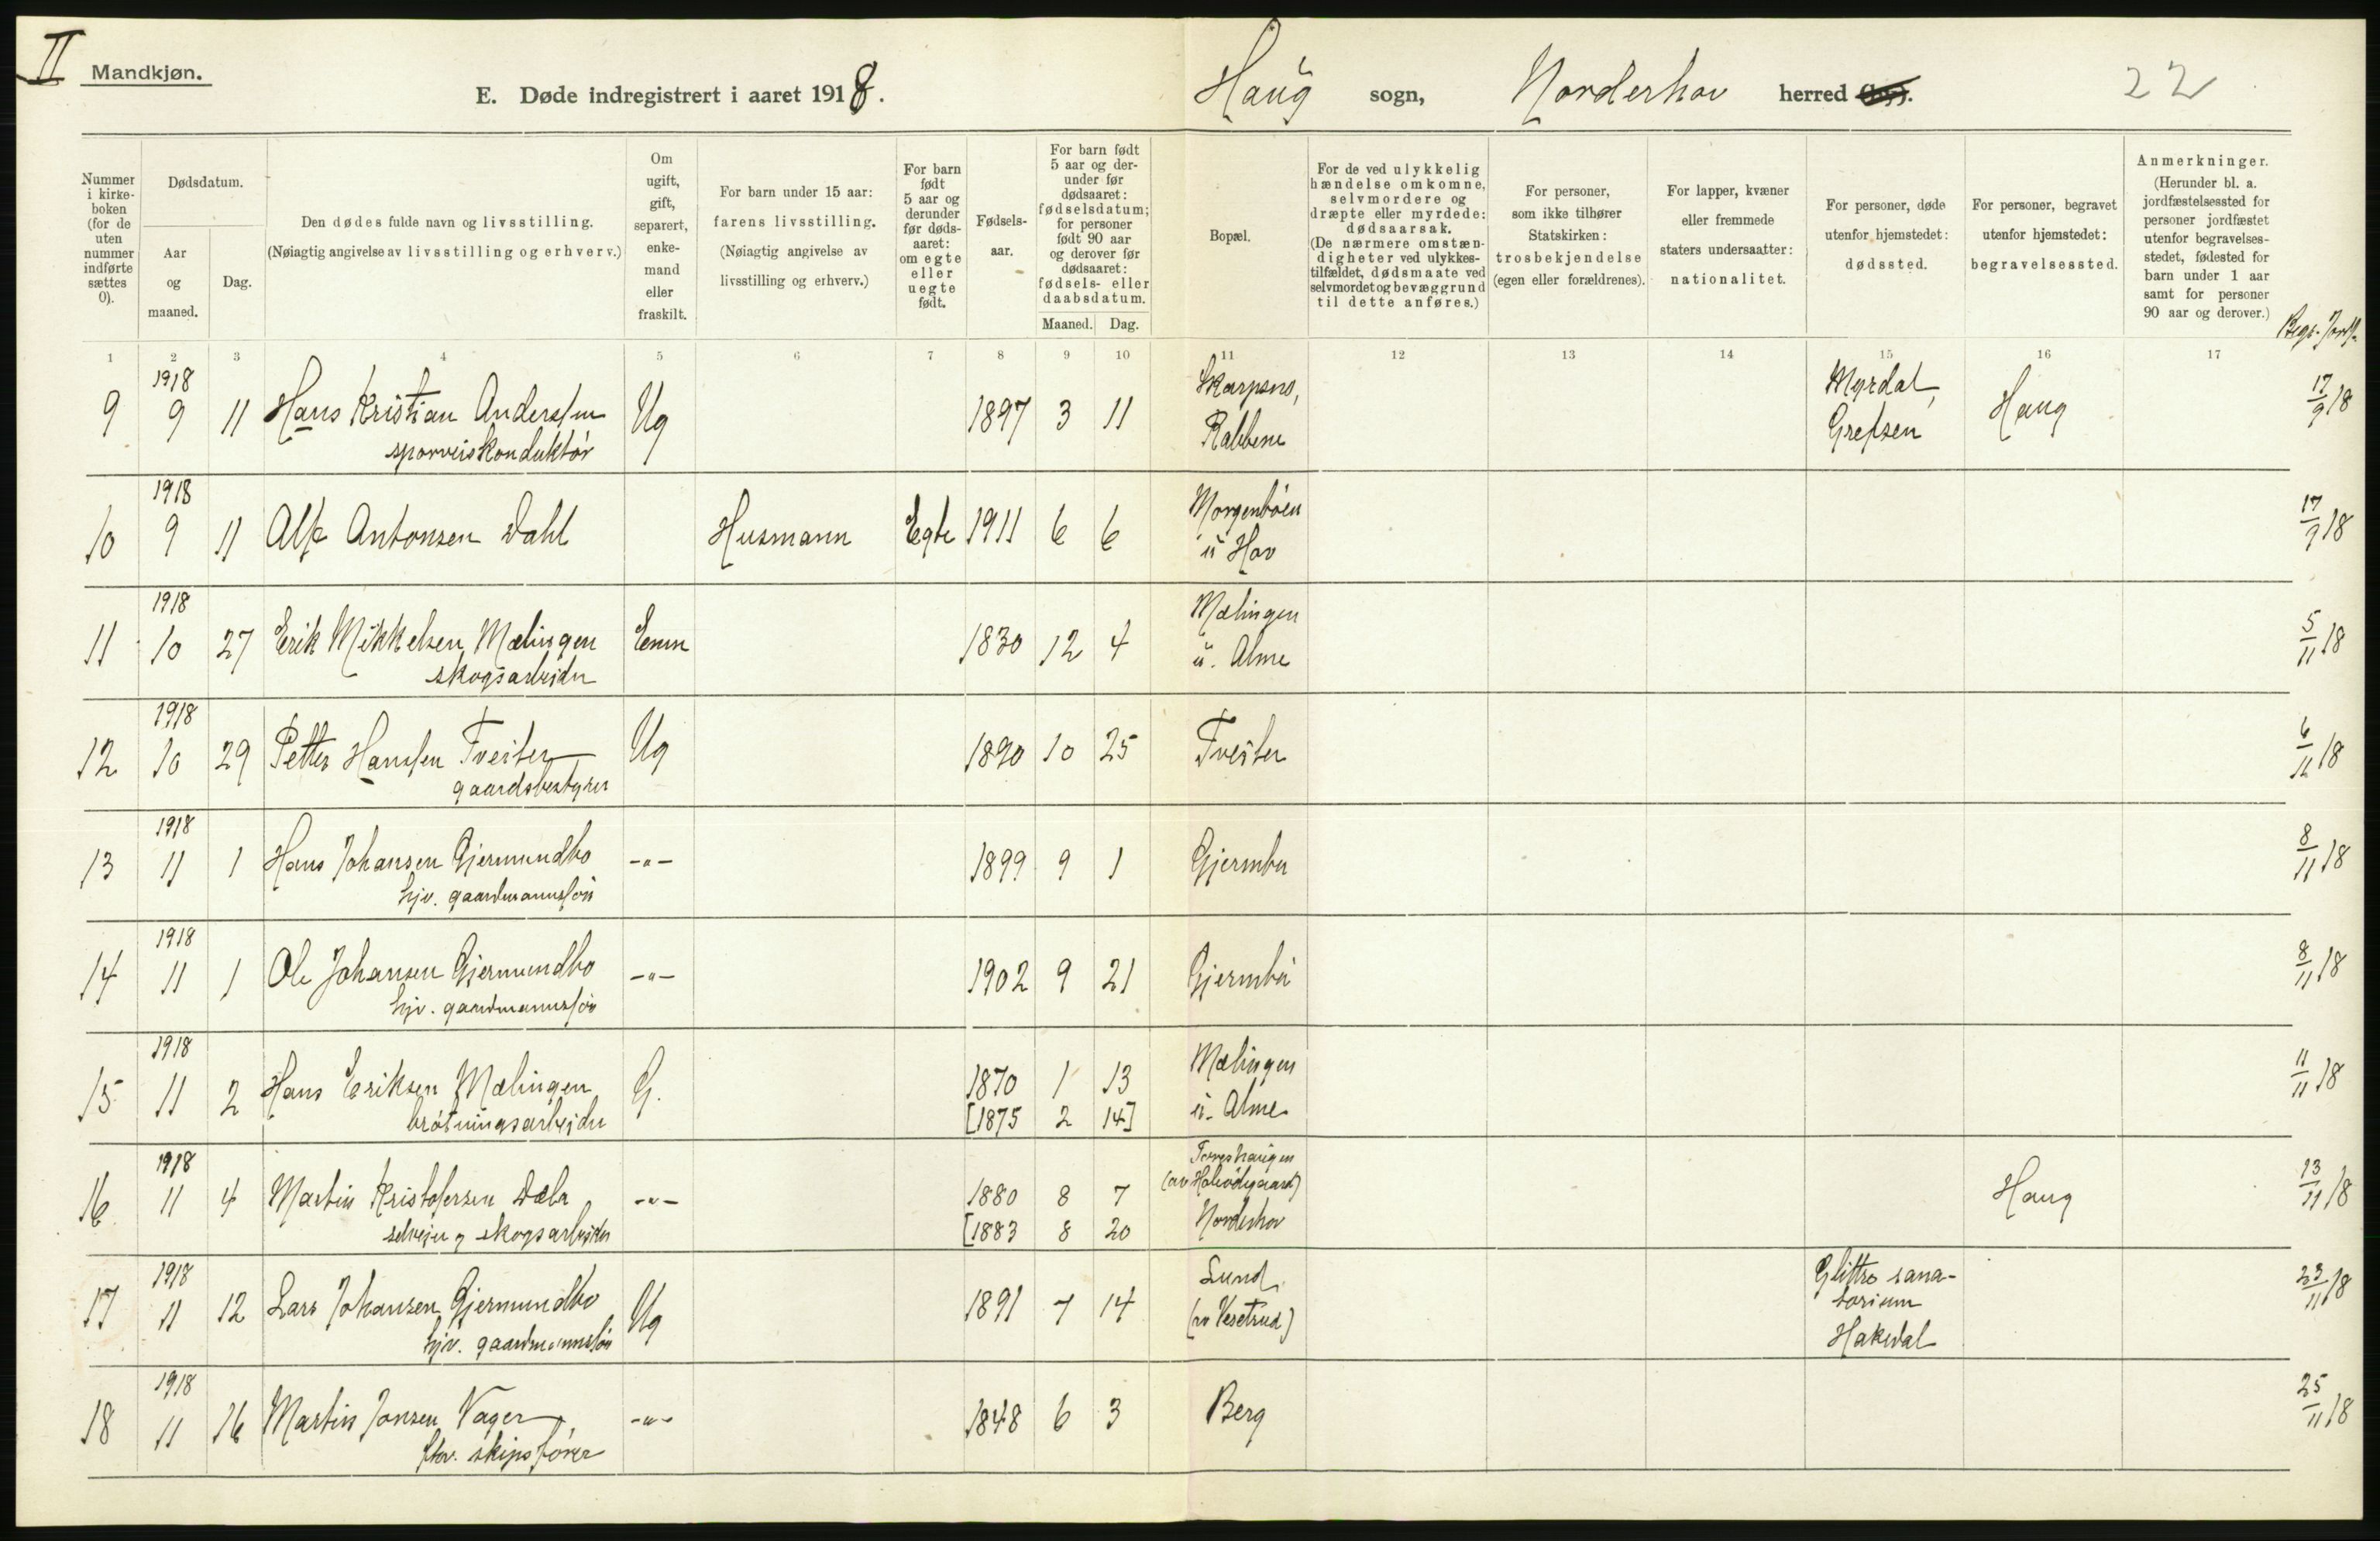 II
Mandkjøn.
E. Døde indregistrert i aaret 1918.
Haug sogn, Norderhov herred
22
Nummer i kirkeboken (for de uten nummer indførte sættes 0).
Dødsdatum.
Aar og maaned.
Dag.
Den dødes fulde navn og livsstilling.
(Nøiagtig angivelse av livsstilling og erhverv.)
Om ugift, gift, separert, enkemand eller fraskilt.
For barn under 15 aar: farens livsstilling.
(Nøiagtig angivelse av livsstilling og erhverv.)
For barn født 5 aar og derunder før dødsaaret: om egte eller uegte født.
Fødselsaar.
For barn født 5 aar og derunder før dødsaaret: fødselsdatum; for personer født 90 aar og derover før dødsaaret: fødsels- eller daabsdatum.
Maaned. Dag.
Bopæl.
For de ved ulykkelig hændelse omkomne, selvmordere og dræpte eller myrdede: dødsaarsak.
(De nærmere omstændigheter ved ulykkestilfældet, dødsmaate ved selvmordet og bevæggrund til dette anføres.)
For personer, som ikke tilhører Statskirken: trosbekjendelse (egen eller forældrenes).
For lapper, kvæner eller fremmede staters undersaatter: nationalitet.
For personer, døde utenfor hjemstedet: dødssted.
For personer, begravet utenfor hjemstedet: begravelsessted.
Anmerkninger.
(Herunder bl. a. jordfæstelsessted for personer jordfæstet utenfor begravelsesstedet, fødested for barn under 1 aar samt for personer 90 aar og derover.)
1 2 3 4 5 6 7 8 9 10 11 12 13 14 15 16 17
1918
9 9 11 Hans Kristian Anderssen Ug 1897 3 11 Skarpsno, Rabbene Myrdal, Grefsen Haug 17/9 18
sporveiskonduktør
1918
10 9 11 Alf Antonsen Dahl Husmann Egte 1911 6 6 Morgenbøen u Hov 17/9 18
1918
11 10 27 Erik Mikkelsen Mælingen Enm 1830 12 4 Mælingen u. Alme 5/11 18
skogsarbeider
1918
12 10 29 Petter Hanssen Tveiten Ug 1890 10 25 Tveiten 6/11 18
gaardsbestyrer
1918
13 11 1 Hans Johansen Gjermundbo -"- 1899 9 1 Gjermbu 8/11 18
hjv. gaardmannssøn
1918
14 11 1 Ole Johansen Gjermundbo -"- 1902 9 21 Gjermbu 8/11 18
hjv. gaardmannssøn
1918
15 11 2 Hans Eriksen Mælingen G. 1870 1 13 Mælingen u. Alme 11/11 18
brøtningsarbeider [1875 2 14]
1918
16 11 4 Martin Kristofersen Dæla -"- 1880 8 7 Norderhov Haug 13/11 18
selveier og skogsarbeider [1883 8 20
1918
17 11 12 Lars Johansen Gjermundbo Ug 1891 7 14 Lund (av Vesetrud) Glittre sanatorium Hakedal 23/11 18
hjv. gaardmannssøn
1918
18 11 16 Martin Jonsen Vager -"- 1848 6 3 Berg 25/11 18
fhv. skipsfører